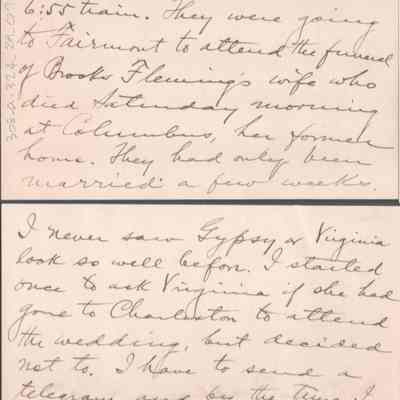 6:55 train. They were going
to Fairmont to attend the funeral
of Brooks Fleming's wife who
died Saturday morning
at Columbus, her former
home. They had only been
married a few weeks.
I never saw Gypsy or Virginia
look so well before. I started
once to ask Virginia if she had
gone to Charleston to attend
the wedding, but decided
not to. I have to send a
telegram and by the time I